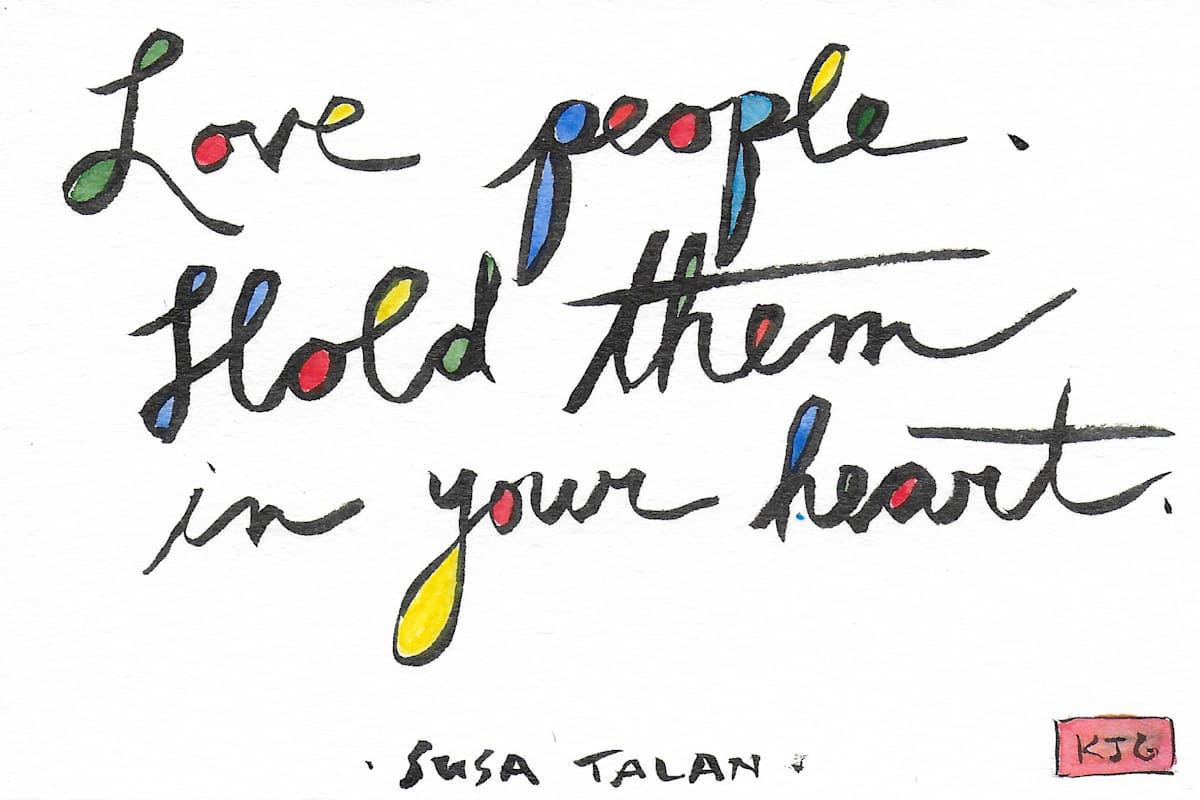 Love people.
Hold them
in your heart.
· SUSA TALAN ·
KJG